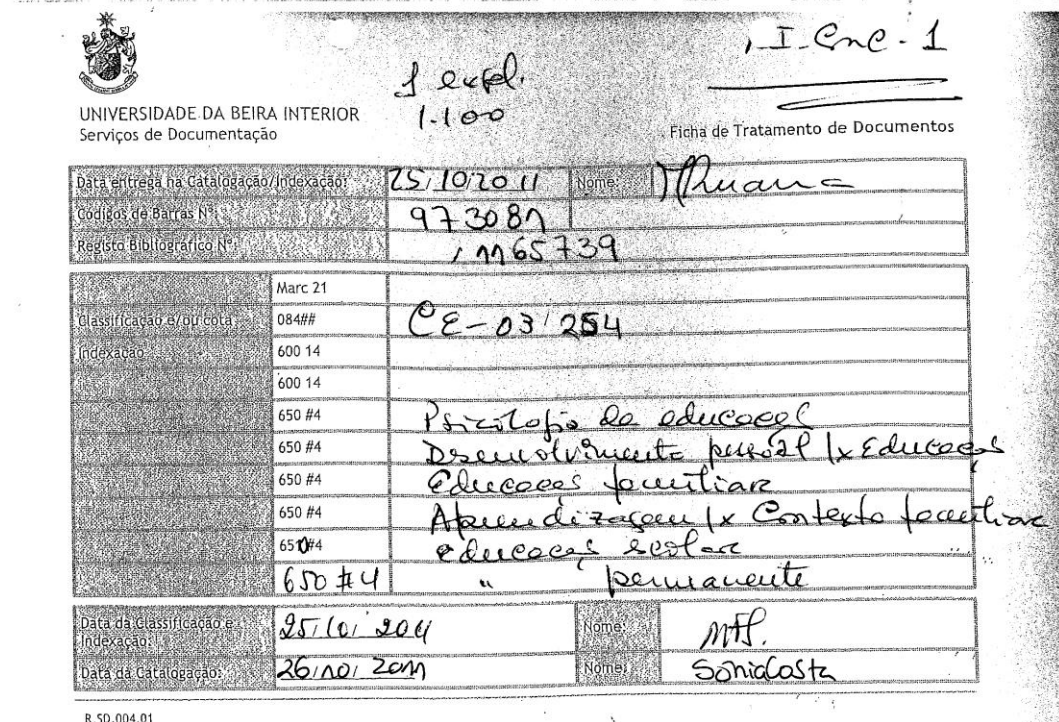 I-CNC-1
1 expl.
1.100
UNIVERSIDADE DA BEIRA INTERIOR
Serviços de Documentação
Ficha de Tratamento de Documentos
Data entrega na Catalogação/Indexação: 25/10/2011 Nome:
Códigos de Barras Nº: 973081
Registo Bibliográfico Nº: 1165739
Marc 21
Classificação e/ou cota 084## CE-03/254
Indexação 600 14
600 14
650 #4 Psicologia da educação
650 #4 Desenvolvimento pessoal |x Educação
650 #4 Educação familiar
650 #4 Aprendizagem |x Contexto familiar
650#4 educação escolar
650 #4 " permanente
Data da Classificação e Indexação: 25/10/2011 Nome: MFF.
Data da Catalogação: 26/10/2011 Nome: Sónia Costa
R.SD.004.01